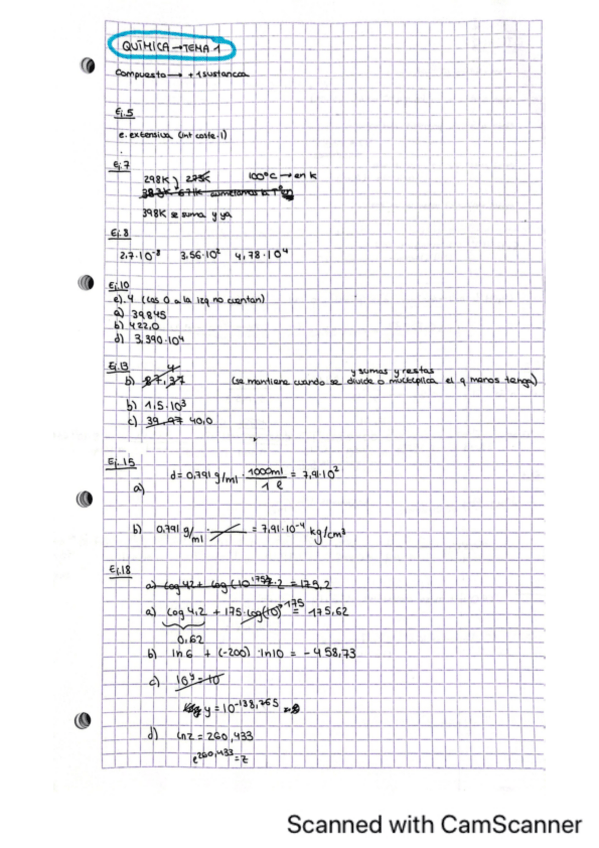 QUÍMICA → TEMA 1
Compuesta → + 1 sustancia
Ej.5
e. extensiva (int coste.1)
Ej.7
298K 273K 100°C → en K
398K se suma y ya
Ej.8
2,7·10⁻⁸ 3.56·10² 4,78·10⁴
Ej.10
e). 4 (Los 0 a la izq no cuentan)
a) 39845
b) 422,0
d) 3,390·10⁴
Ej.13
y sumas y restas
b) 87,37 4 (se mantiene cuando se divide o multiplica el q menos tenga)
b) 1,5·10³
c) 39,97 40,0
Ej.15
a) d = 0,791 g/ml · 1000ml / 1 l = 7,91·10²
b) 0,791 g/ml · = 7,91·10⁻⁴ kg/cm³
Ej.18
a) log 42 + log (10¹⁷⁵) · 2 = 175,2
a) log 4,2 + 175·log(10)¹⁷⁵ = 175,62
0,62
b) ln 6 + (-200) · ln10 = -458,73
c) 10^y = 10
y = 10^-138,265
d) Ln z = 260,433
e^260,433 = z
Scanned with CamScanner